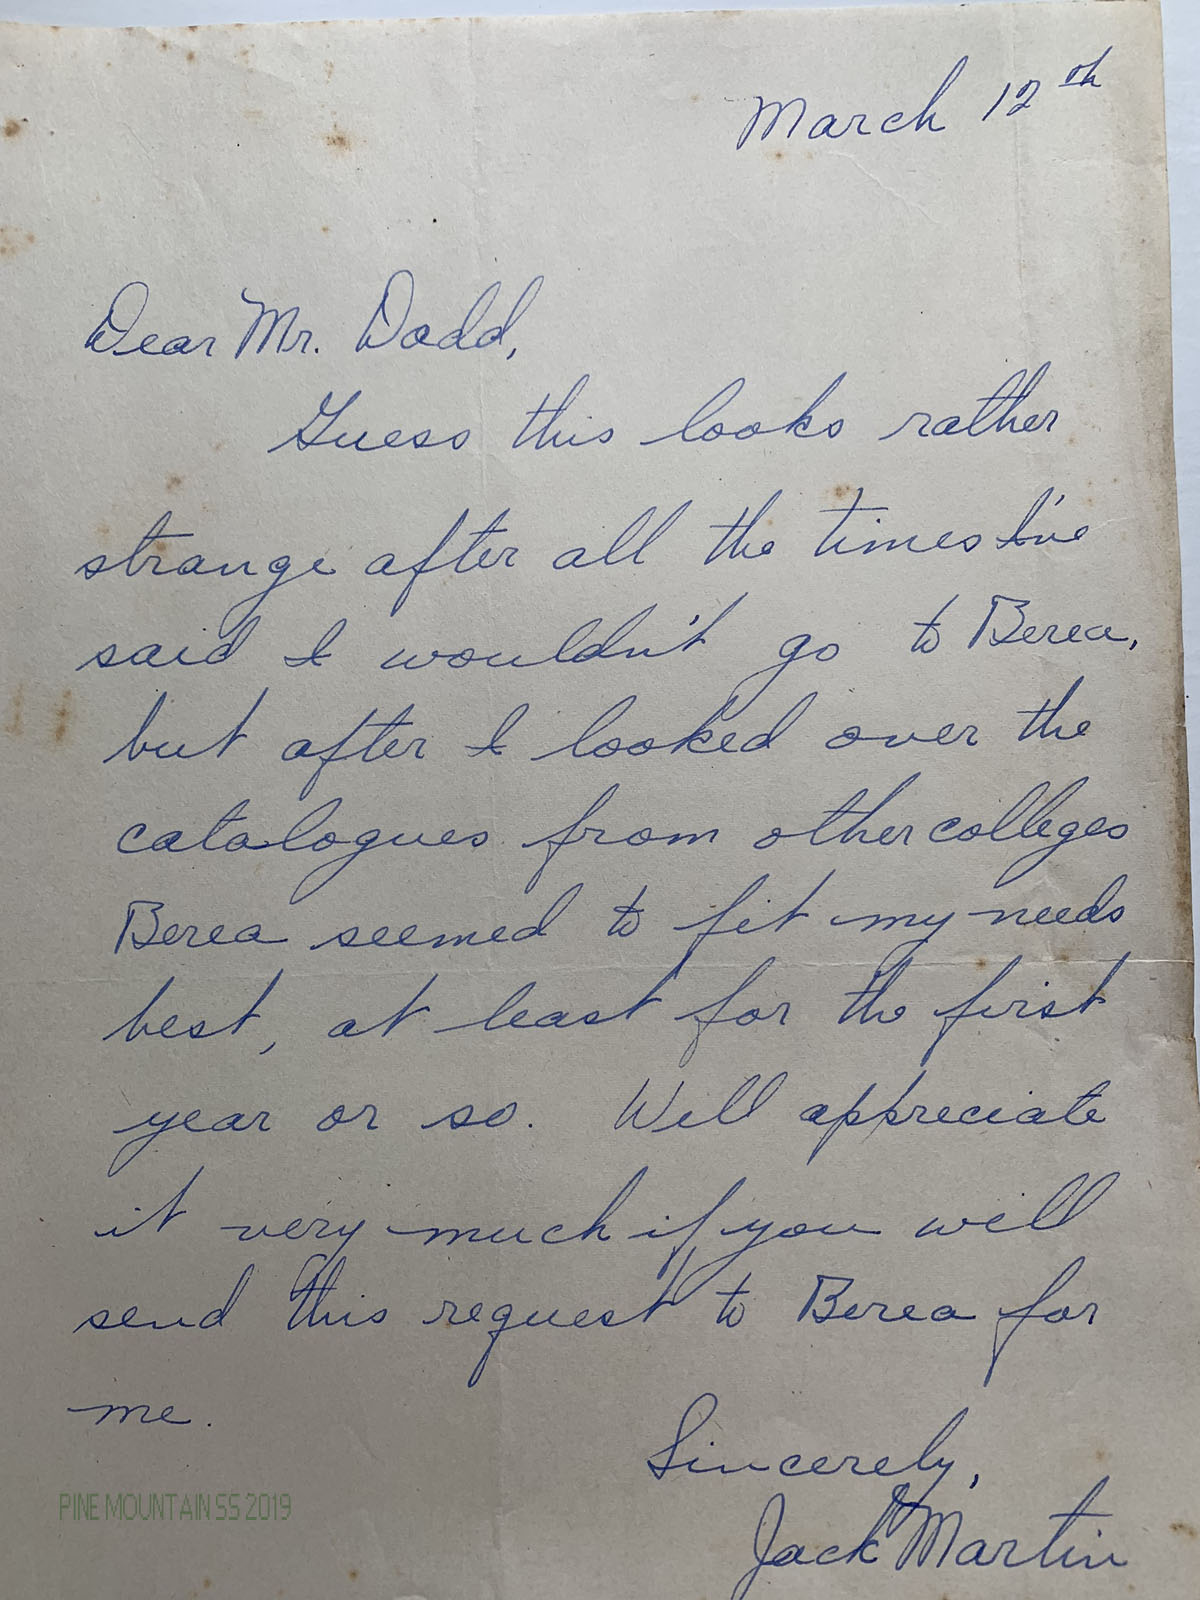 March 12th
Dear Mr. Dodd,
Guess this looks rather
strange after all the times I've
said I wouldn't go to Berea,
but after I looked over the
catalogues from other colleges
Berea seemed to fit my needs
best, at least for the first
year or so. Will appreciate
it very much if you will
send this request to Berea for
me.
Sincerely,
Jack Martin
PINE MOUNTAIN SS 2019